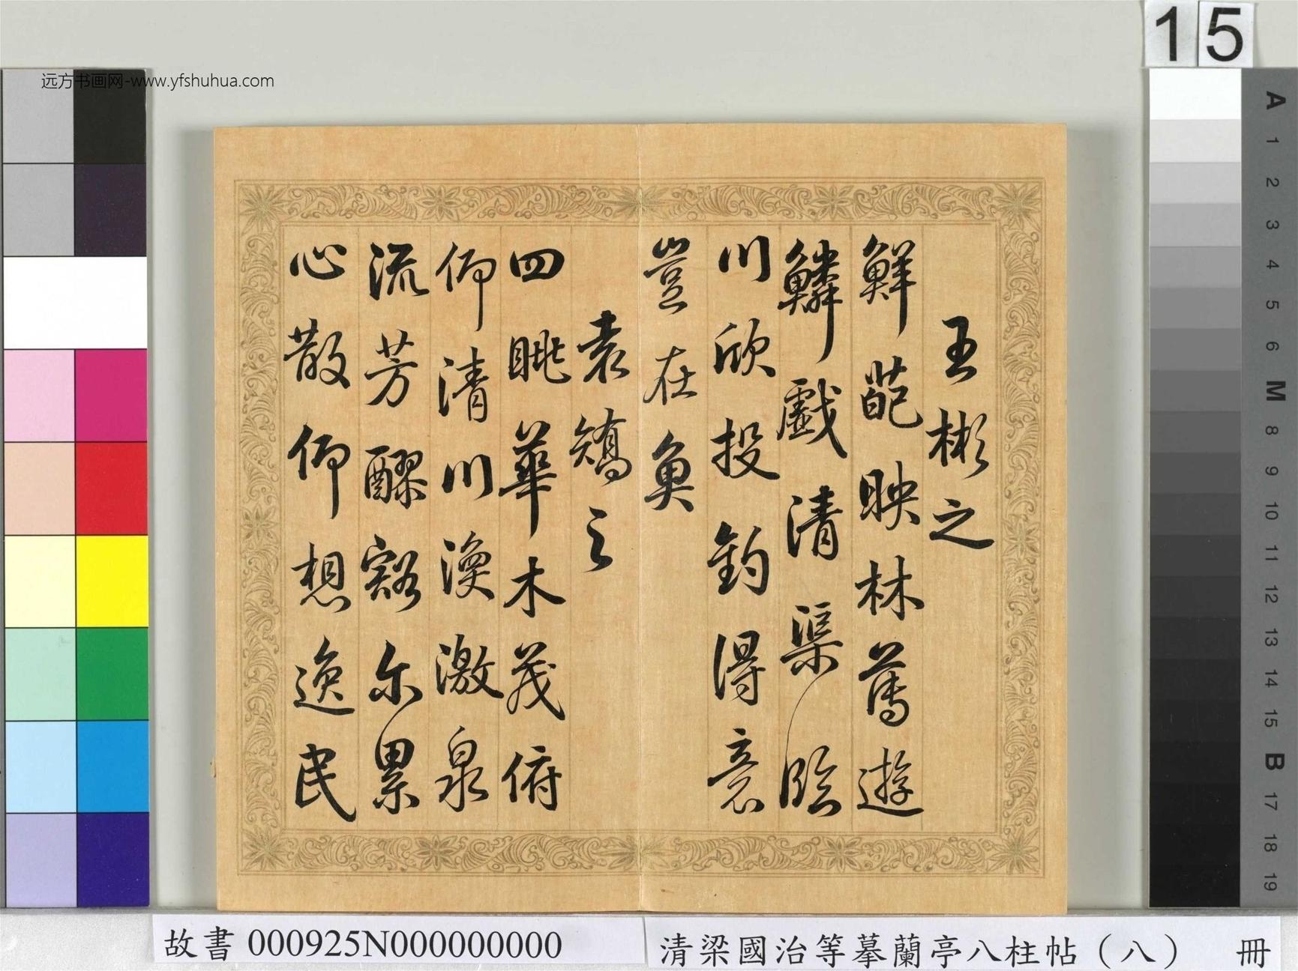 15
远方书画网-www.yfshuhua.com
王彬之
鮮葩映林薄遊
鱗戲清渠臨
川欣投釣得意
豈在魚
袁矯之
四眺華木茂俯
仰清川渙激泉
流芳醪豁尔累
心散仰想逸民
A
1
2
3
4
5
6
M
8
9
10
11
12
13
14
15
B
17
18
19
故書 000925N000000000
清梁國治等摹蘭亭八柱帖（八） 冊